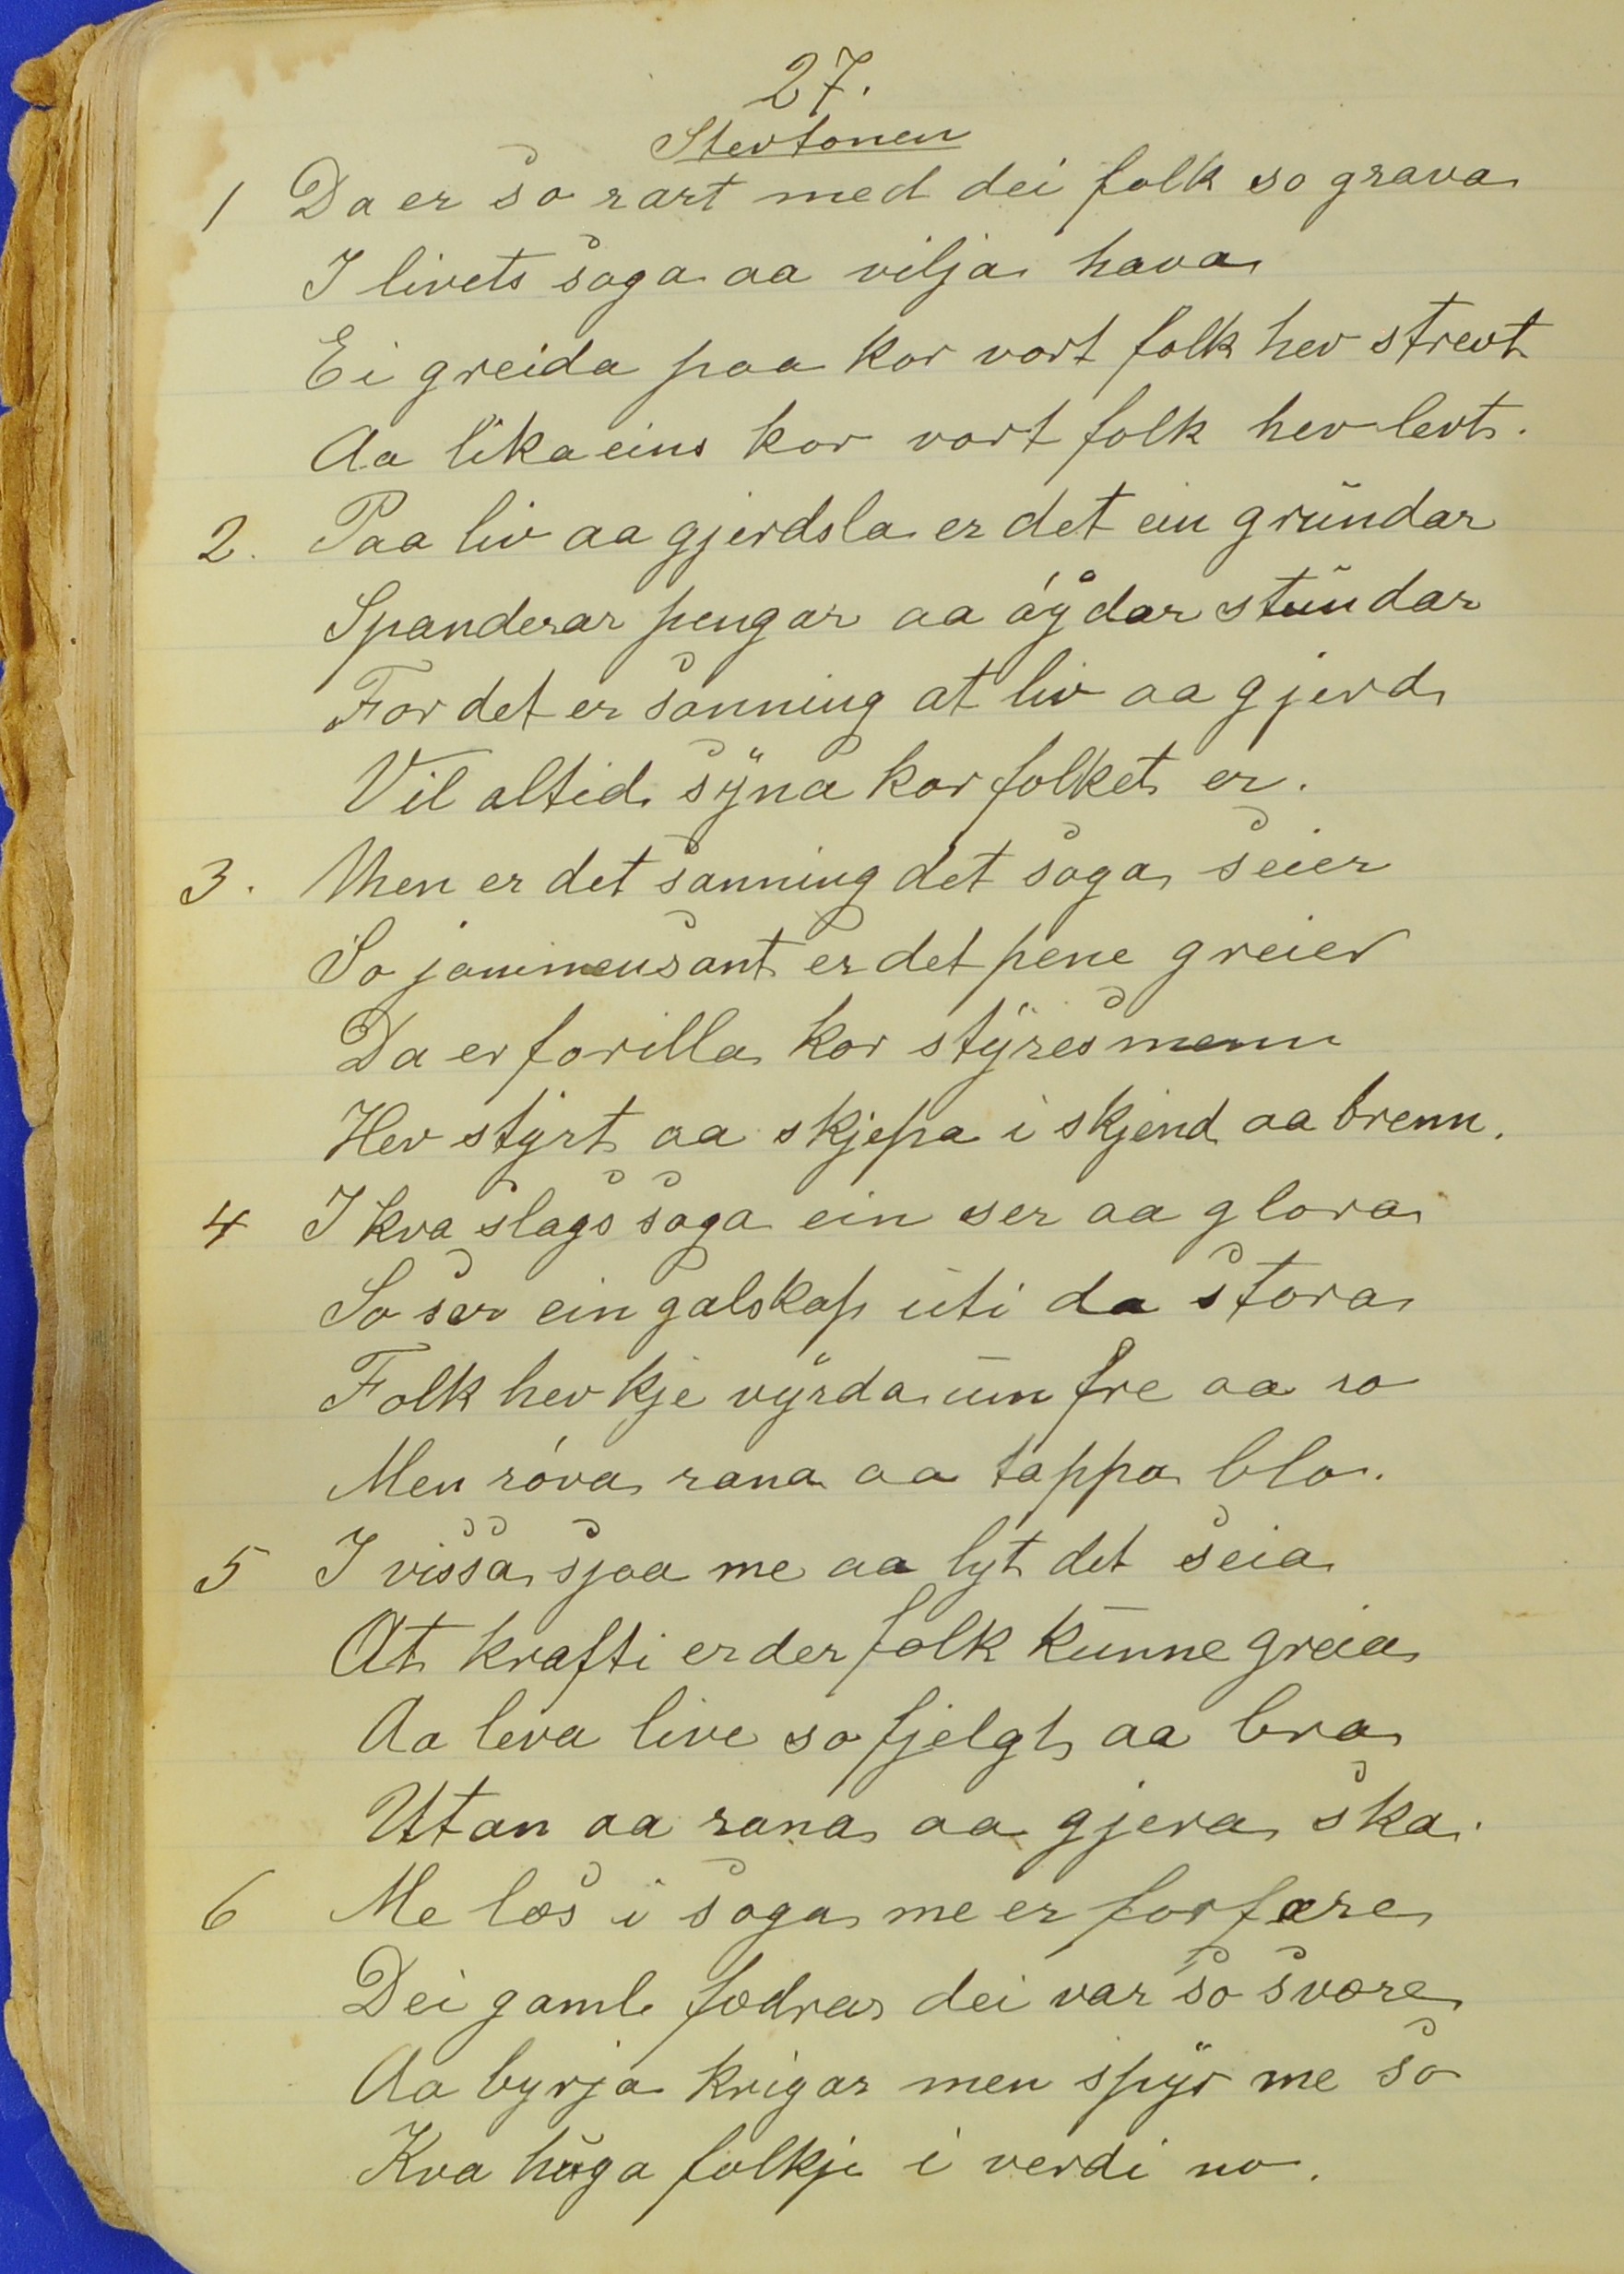 27.
Stevtonen
1 Da er so rart med dei folk so grava
I livets soga aa vilja hava
Ei greida paa kor vort folk hev strevt
Aa lika eins kor vort folk hev levt.
2. Paa liv aa gjerdsla er det ein grundar
Spanderar pengar aa óydar stundar
For det er sanning at liv aa gjerd
Vil altid syna kor folket er.
3. Men er det sanning det soga seier
So jammensant er det pene greier
Da er forilla kor styresmenn
Hev styrt aa skjepa i skjend aa brenn.
4 I kva slags soga ein ser aa glora
So ser ein galskap uti da stora
Folk hev kje vyrda um fre aa ro
Men róva rana aa tappa blo.
5 I vissa sjaa me aa lyt det seia
At krafti er der folk kunne greia
Aa leva live so fjelgt aa bra
Utan aa rana aa gjera ska.
6 Me læs i soga me er forfære
Dei gamle fædrar dei var so svære
Aa byrja krigar men spyr me so
Kva huga folkje i verdi no.